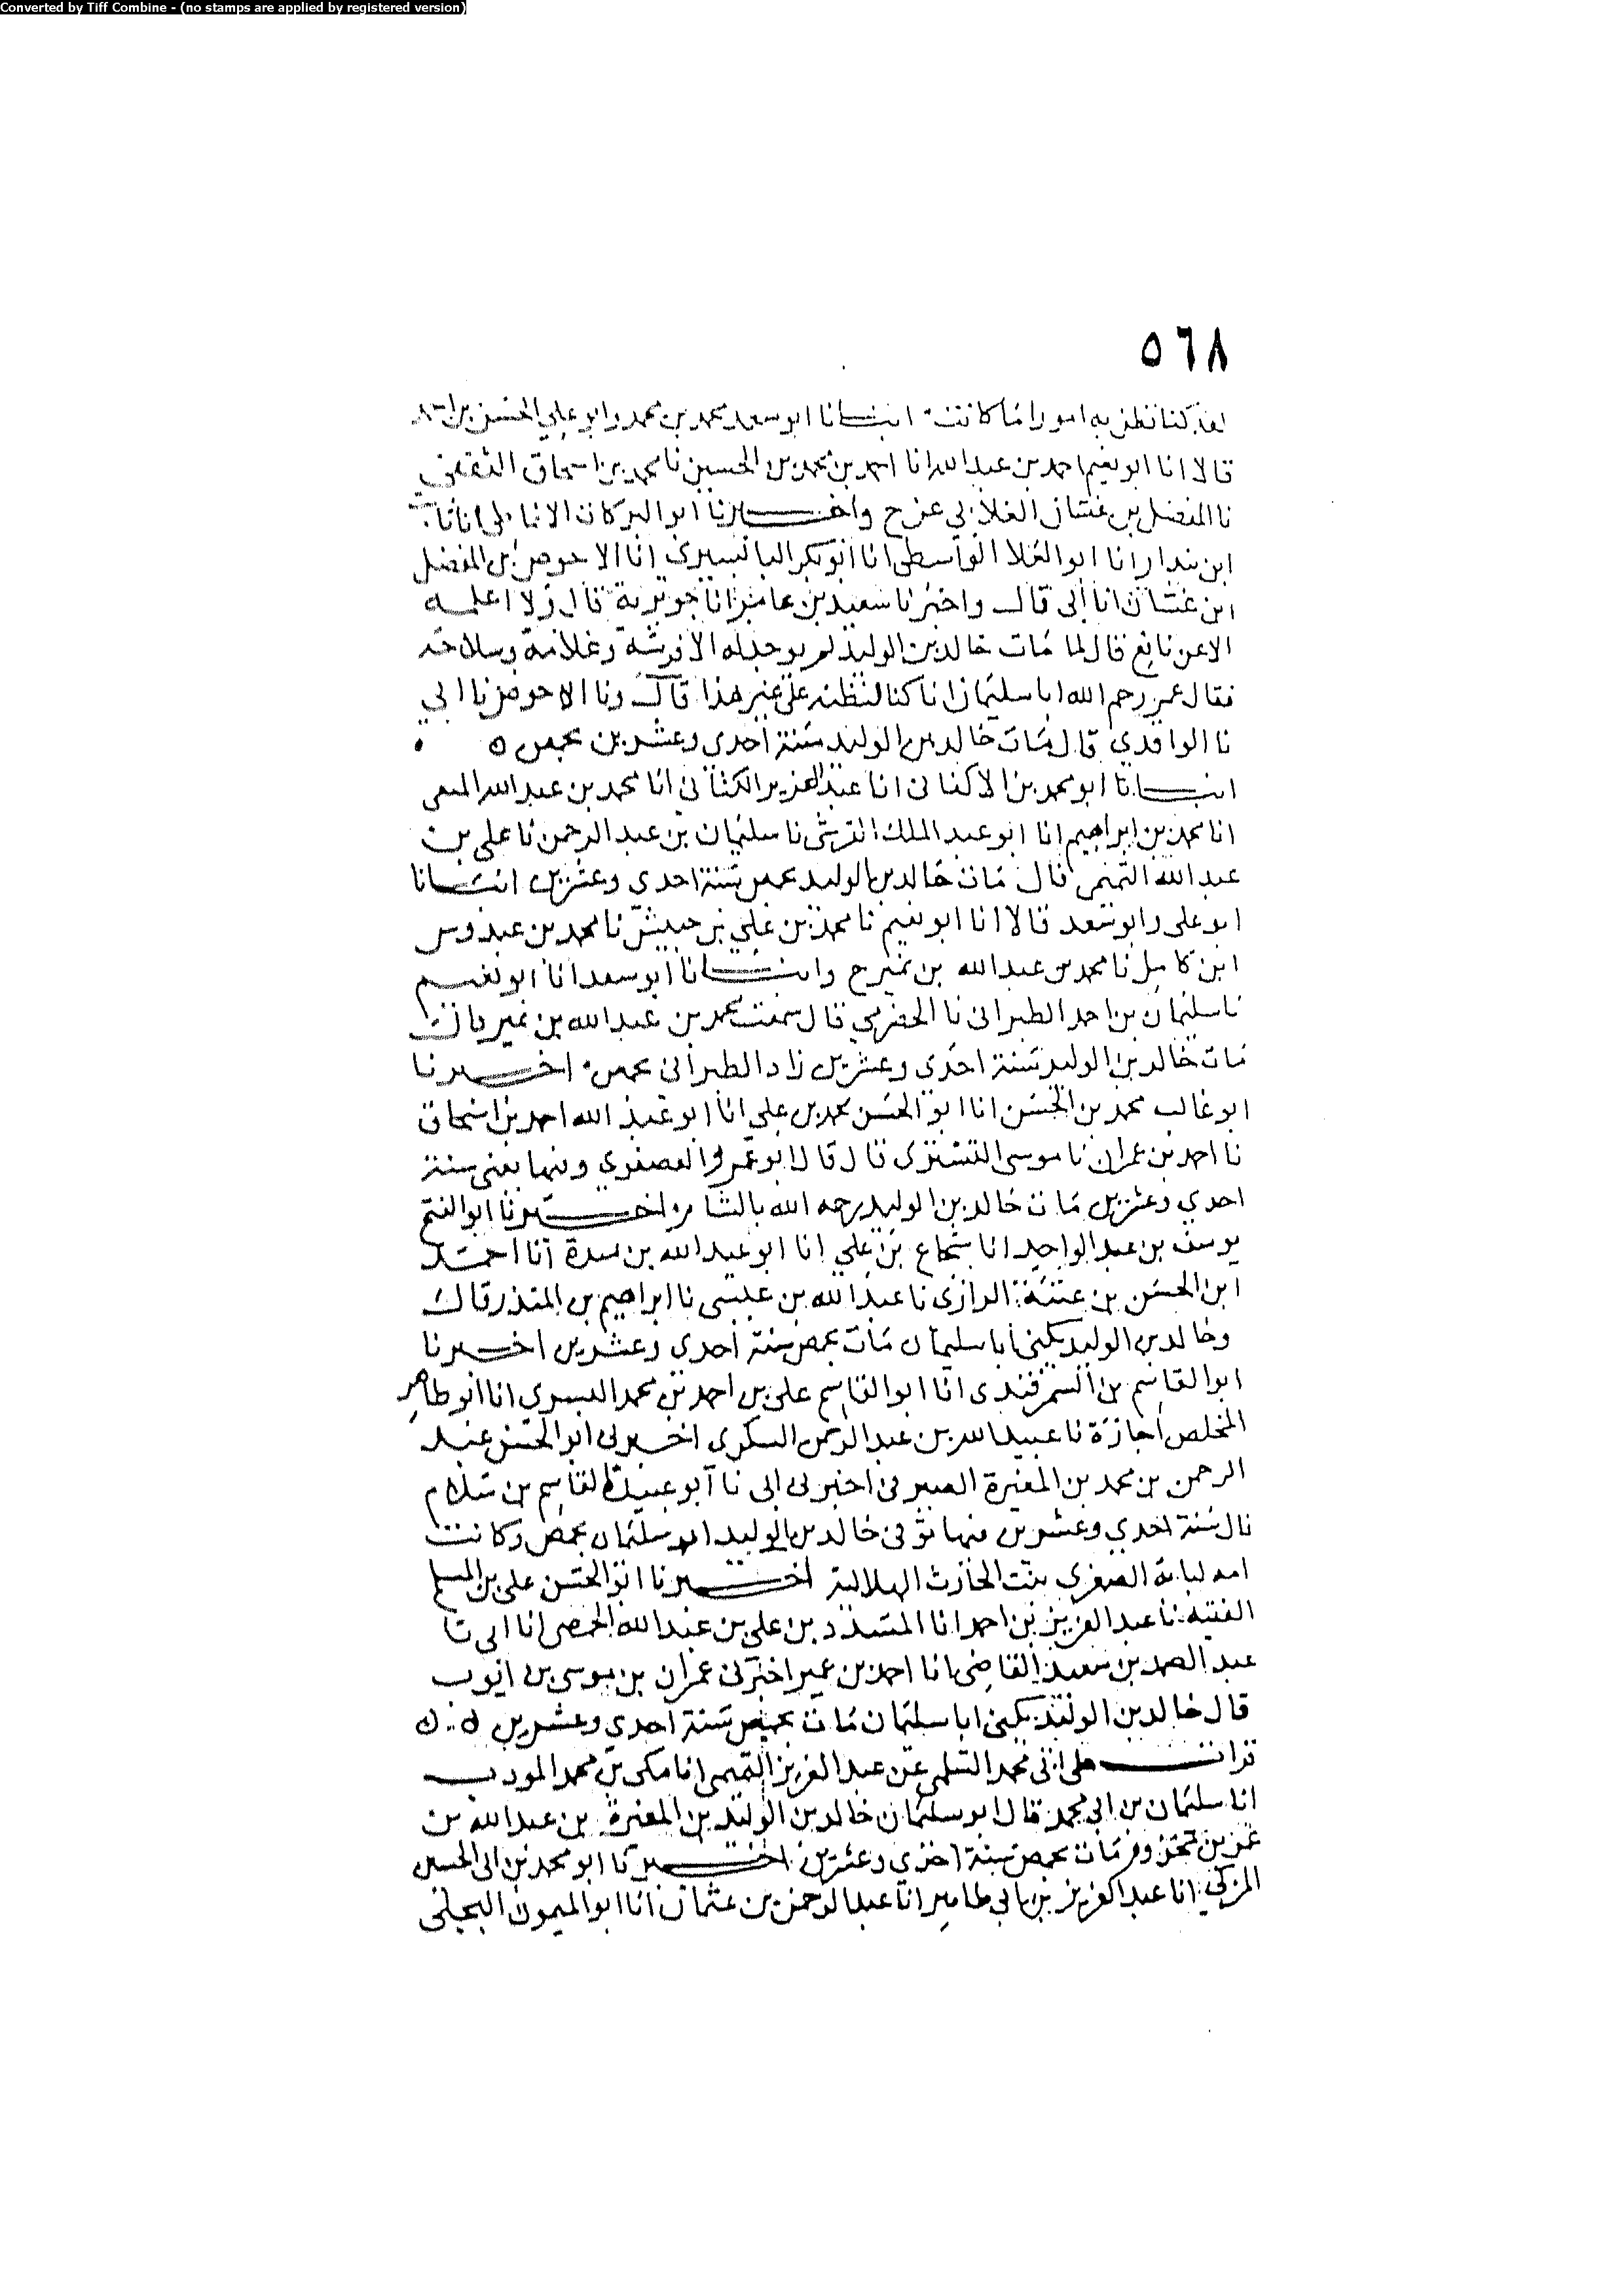 Converted by Tiff Combine - (no stamps are applied by registered version)
٥٦٨
لقد كنا نظن به امورا ما كانت انبانا ابو سعد محمد بن محمد وابو علي الحسن بن احمد
قالا انا ابو نعيم احمد بن عبد الله انا احمد بن محمد بن الحسين نا محمد بن اسحاق الثقفي
نا المفضل بن غسان الغلابي عن ح واخبرنا ابو البركات الانماطي انا ثابت
ابن بندار انا ابو العلا الواسطي انا ابو بكر البابسيري انا الاحوص بن المفضل
ابن غسان انا ابي قال واخبرنا سعيد بن عامر انا جويرية قال ولا اعلمه
الا عن نافع قال لما مات خالد بن الوليد لم يوجد له الا فرسه وغلامه وسلاحه
فقال عمر رحم الله ابا سليمان انا كنا لنظنه على غير هذا قال ونا الاحوص نا ابي
نا الواقدي قال مات خالد بن الوليد سنة احدى وعشرين بحمص ه
انبانا ابو محمد بن الاكفاني انا عبد العزيز الكتاني انا محمد بن عبد الله
انا محمد بن ابراهيم انا ابو عبد الملك القرشي نا سليمان بن عبد الرحمن نا علي بن
عبد الله التميمي قال مات خالد بن الوليد بحمص سنة احدي وعشرين انبانا
ابو علي وابو سعد قالا انا ابو نعيم نا محمد بن علي بن حبيش نا محمد بن عبدوس
ابن كامل نا محمد بن عبد الله بن نمير ح وانبانا ابو سعد انا ابو نعيم
نا سليمان بن احمد الطبراني نا الحضرمي قال سمعت محمد بن عبد الله بن نمير قال
مات خالد بن الوليد سنة احدي وعشرين زاد الطبراني بحمص اخبرنا
ابو غالب محمد بن الحسن انا ابو الحسن محمد بن علي انا ابو عبد الله احمد بن اسحاق
نا احمد بن عمران نا موسى التستري قال قال ابو عمرو العصفري وفيها يعني سنة
احدي وعشرين مات خالد بن الوليد رحمه الله بالشام اخبرنا ابو الفتح
يوسف بن عبد الواحد انا شجاع بن علي انا ابو عبد الله بن مندة انا احمد
ابن الحسن بن عتبة الرازي نا عبد الله بن عيسى نا ابراهيم بن المنذر قال
وخالد بن الوليد يكنى ابا سليمان مات بحمص سنة احدى وعشرين اخبرنا
ابو القاسم بن السمرقندي انا ابو القاسم علي بن احمد بن محمد البسري انا ابو طاهر
المخلص اجازة نا عبيد الله بن عبد الرحمن السكري اخبرني ابو الحسن عبد
الرحمن بن محمد بن المغيرة الصيرفي اخبرني ابي نا ابو عبيد القاسم بن سلام
قال سنة احدي وعشرين فيها توفي خالد بن الوليد ابو سليمان بحمص وكانت
امه لبابة الصغرى بنت الحارث الهلالية اخبرنا ابو الحسن علي بن المسلم
الفقيه نا عبد العزيز بن احمد انا المسدد بن علي بن عبد الله الحمصي انا ابي نا
عبد الصمد بن سعيد القاضي انا احمد بن عمير اخبرني عمران بن موسى بن ايوب
قال خالد بن الوليد يكنى ابا سليمان مات بحمص سنة احدي وعشرين ه ه
قرات على ابي محمد السلمي عن عبد العزيز التميمي انا مكي بن محمد المودب
انا سليمان بن ابي محمد قال ابو سليمان خالد بن الوليد بن المغيرة بن عبد الله بن
عمر بن مخزوم مات بحمص سنة احدي وعشرين اخبرنا ابو محمد بن ابي الحسين
المزكي انا عبد العزيز بن ابي طاهر انا عبد الرحمن بن عثمان انا ابو الميمون البجلي